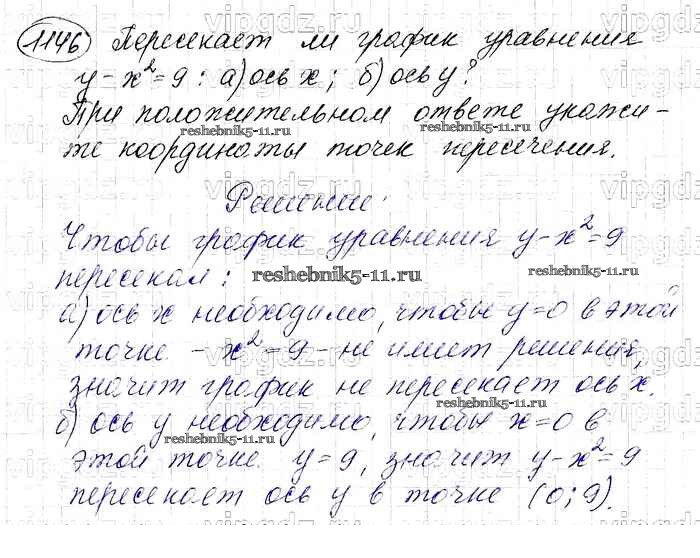 1146 Пересекает ли график уравнения
y - x² = 9 : а) ось x ; б) ось y ?
При положительном ответе укажи-
те координаты точек пересечения.
Решение:
Чтобы график уравнения y - x² = 9
пересекал :
а) ось x необходимо, чтобы y = 0 в этой
точке - x² = 9 - не имеет решения,
значит график не пересекает ось x.
б) ось y необходимо, чтобы x = 0 в
этой точке y = 9, значит y - x² = 9
пересекает ось y в точке (0 ; 9).
vipgdz.ru
reshebnik5-11.ru
reshebnik5-11.ru
reshebnik5-11.ru
reshebnik5-11.ru
reshebnik5-11.ru
reshebnik5-11.ru